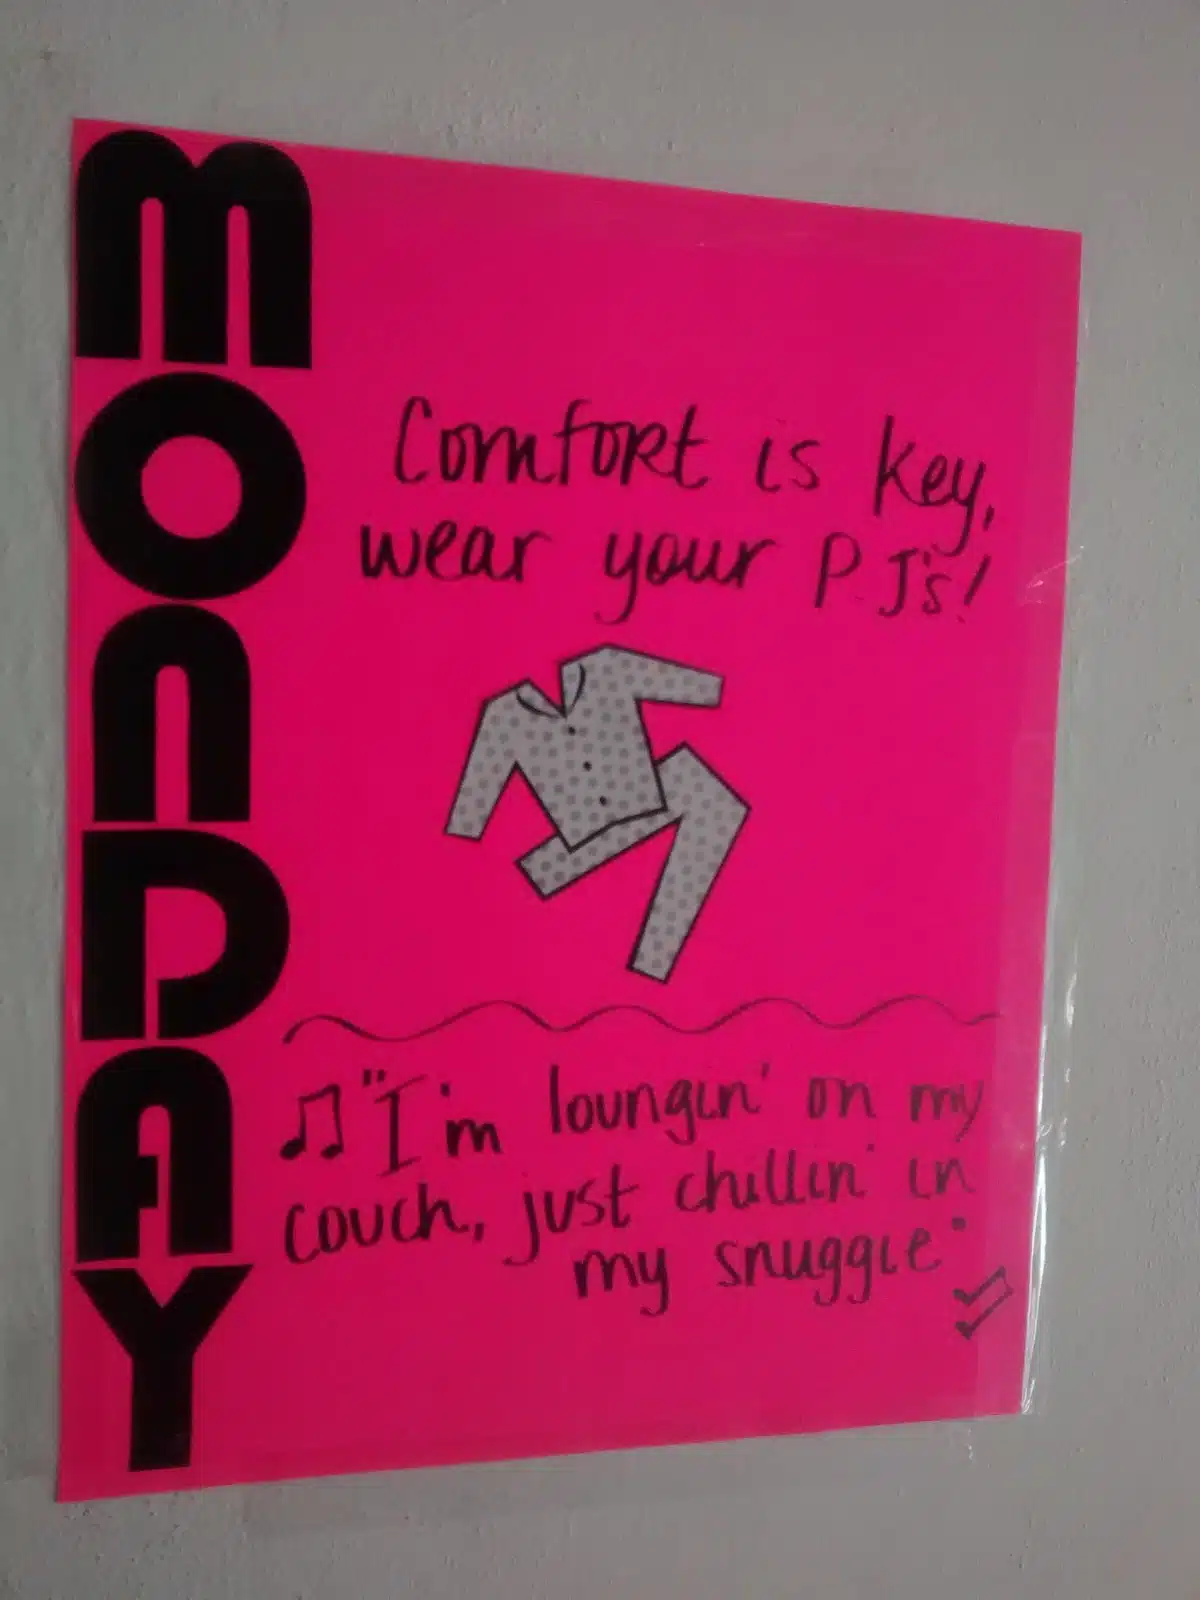 MONDAY
Comfort is key,
wear your P.J's!
"I'm loungin' on my
couch, just chillin' in
my snuggie"